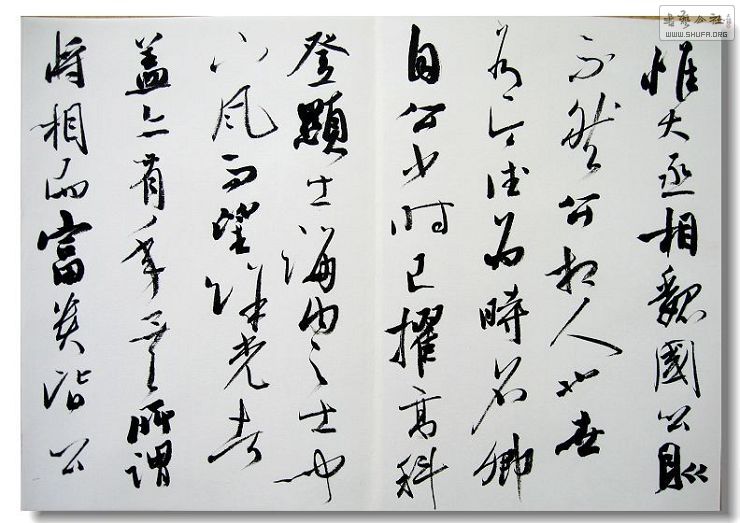 惟大丞相魏國公則
不然公相人也世
有令德為時名卿
自公少时已擢高科
登顯士海内之士聞
下風而望餘光者
蓋亦有年矣所謂
將相而富貴皆公
书藝公社
WWW.SHUFA.ORG